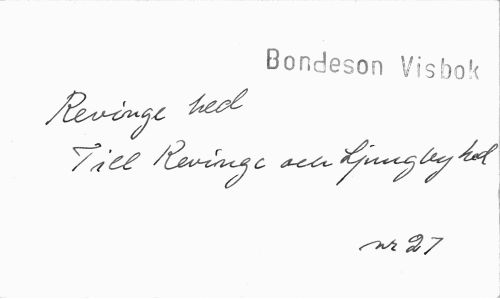 Bondeson Visbok
Revinge hed
Till Revinge och Ljungbyhed
nr 27